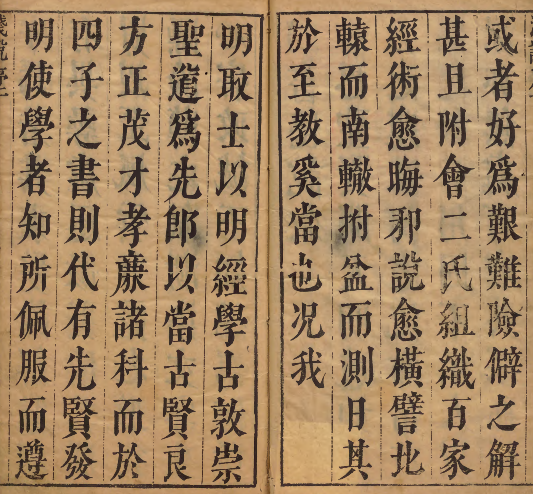 或者好爲艱難險僻之解
甚且附會二氏組織百家
經術愈晦邪說愈橫譬北
轅而南轍拊盆而測日其
於至教奚當也况我
明取士以明經學古敦崇
聖道爲先郎以當古賢良
方正茂才孝亷諸科而於
四子之書則代有先賢發
明使學者知所佩服而遵